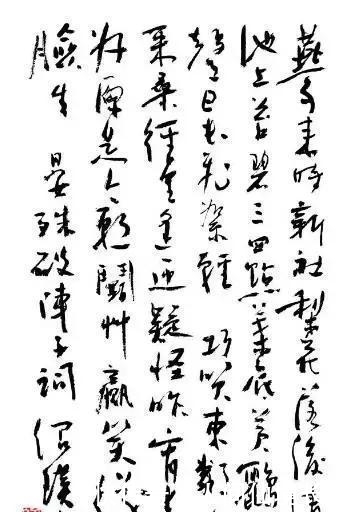 燕子來時新社梨花落後
池上苔碧三四點葉底黃鸝
聲日長飛絮輕巧笑東鄰
采桑徑里逢迎疑怪昨宵
好原是今朝鬭艸贏笑從
臉生 晏殊破陣子詞